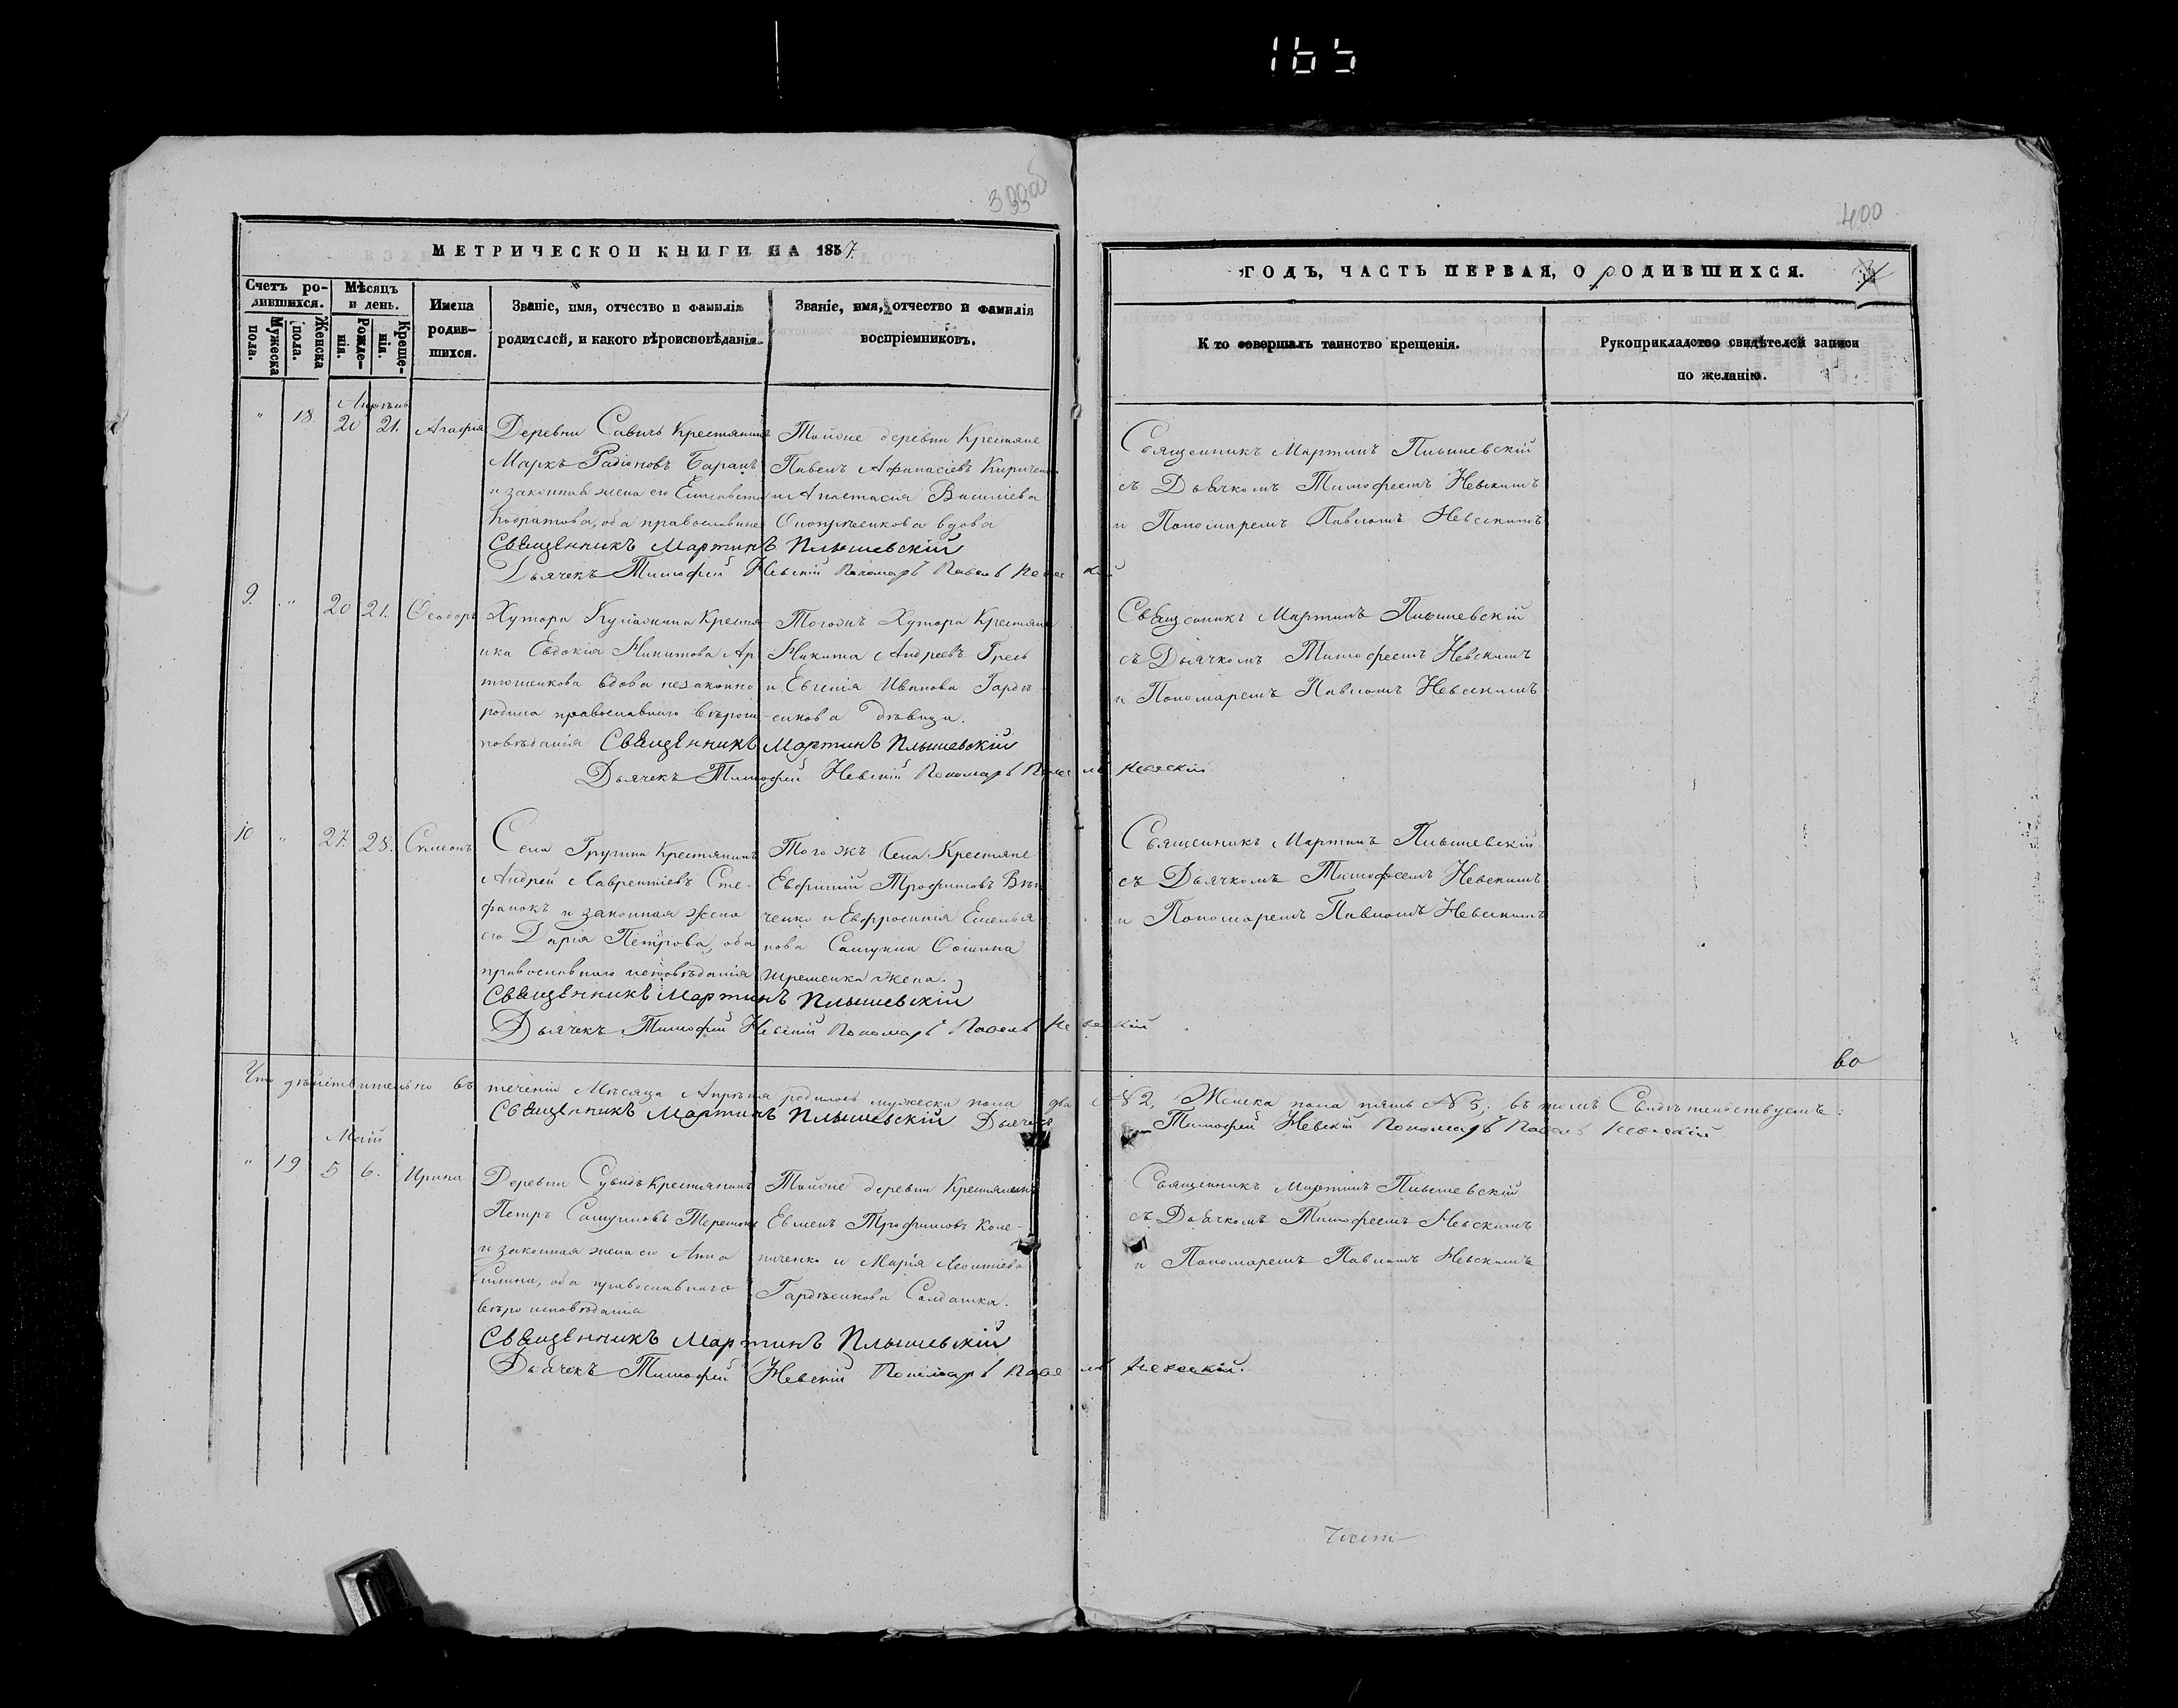 165
399об
400
МЕТРИЧЕСКОЙ КНИГИ НА 1857.
Счетъ ро-
дившихся.
Мѣсяцъ
и день.
Мужеска
пола.
Женска
пола.
Рожде-
нія.
Креще-
нія.
Имена
родив-
шихся.
Званіе, имя, отчество и фамилія
родителей, и какого вѣроисповѣданія.
Званіе, имя, отчество и фамилія
воспріемниковъ.
ГОДЪ, ЧАСТЬ ПЕРВАЯ, О РОДИВШИХСЯ.
Кто совершалъ таинство крещенія.
Рукоприкладство свидѣтелей записи
по желанію.
Апрѣль
" 18. 20 21. Агафія
Деревни Савичъ Крестьянинъ
Маркъ Радіоновъ Баранъ
и законная жена его Елисавета
оба православнаго
Тойже деревни Крестьяне
Павелъ Афанасіевъ
и Анастасія Василіева
вдова
Священникъ Мартинъ Плышевскій
Дьячекъ Тимофей Невскій Пономарь Павелъ Невскій
Священникъ Мартинъ Плышевскій
съ Дьячкомъ Тимофеемъ Невскимъ
и Пономаремъ Павломъ Невскимъ
9. " 20 21. Ѳеодоръ
Хутора Крестья
нка Евдокія Никитова Ар
тюшенкова вдова незаконно
родила православнаго вѣроис
повѣданія
Тогожъ Хутора Крестьяне
Никита Андреевъ Гресь
и Евгенія Иванова Гардѣ
енкова дѣвица.
Священникъ Мартинъ Плышевскій
Дьячекъ Тимофей Невскій Пономарь Павелъ Невскій
Священникъ Мартинъ Плышевскій
съ Дьячкомъ Тимофеемъ Невскимъ
и Пономаремъ Павломъ Невскимъ
10 " 27. 28. Симеонъ
Села Крестьянинъ
Андрей Лаврентіевъ Сте-
фанокъ и законная жена
его Дарія Петрова, оба
православнаго исповѣданія
Того жъ Села Крестьяне
Евфимій Трофимовъ
ченко и Евфросинія Емелья
нова
жена.
Священникъ Мартинъ Плышевскій
Дьячекъ Тимофей Невскій Пономарь Павелъ Невскій
Священникъ Мартинъ Плышевскій
съ Дьячкомъ Тимофеемъ Невскимъ
и Пономаремъ Павломъ Невскимъ
во
Что дѣйствительно въ теченіи Мѣсяца Апрѣля родилось мужеска пола два №2, Женска пола пять №5; въ томъ Свидѣтельствуемъ:
Священникъ Мартинъ Плышевскій Дьячекъ Тимофей Невскій Пономарь Павелъ Невскій
Маій
" 19 5 6. Ирина
Деревни Крестьянинъ
Петръ
и законная жена его Анна
оба православнаго
вѣроисповѣданія
Тойже деревни Крестьянинъ
Евменъ Трофимовъ Коле-
ниченко и Марія Леонтіева
Гардѣенкова Солдатка.
Священникъ Мартинъ Плышевскій
Дьячекъ Тимофей Невскій Пономарь Павелъ Невскій.
Священникъ Мартинъ Плышевскій
съ Дьячкомъ Тимофеемъ Невскимъ
и Пономаремъ Павломъ Невскимъ